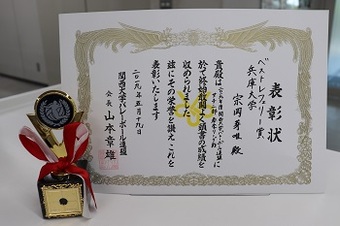 表彰状
ベストレフェリー賞
兵庫大学
殿
貴殿は
於て終始敢闘よく頭書の成績を
収められました
茲にその栄誉を讃えこれを
表彰いたします
二〇一九年五月十九日
関西大学バレーボール連盟
会長 山本章雄